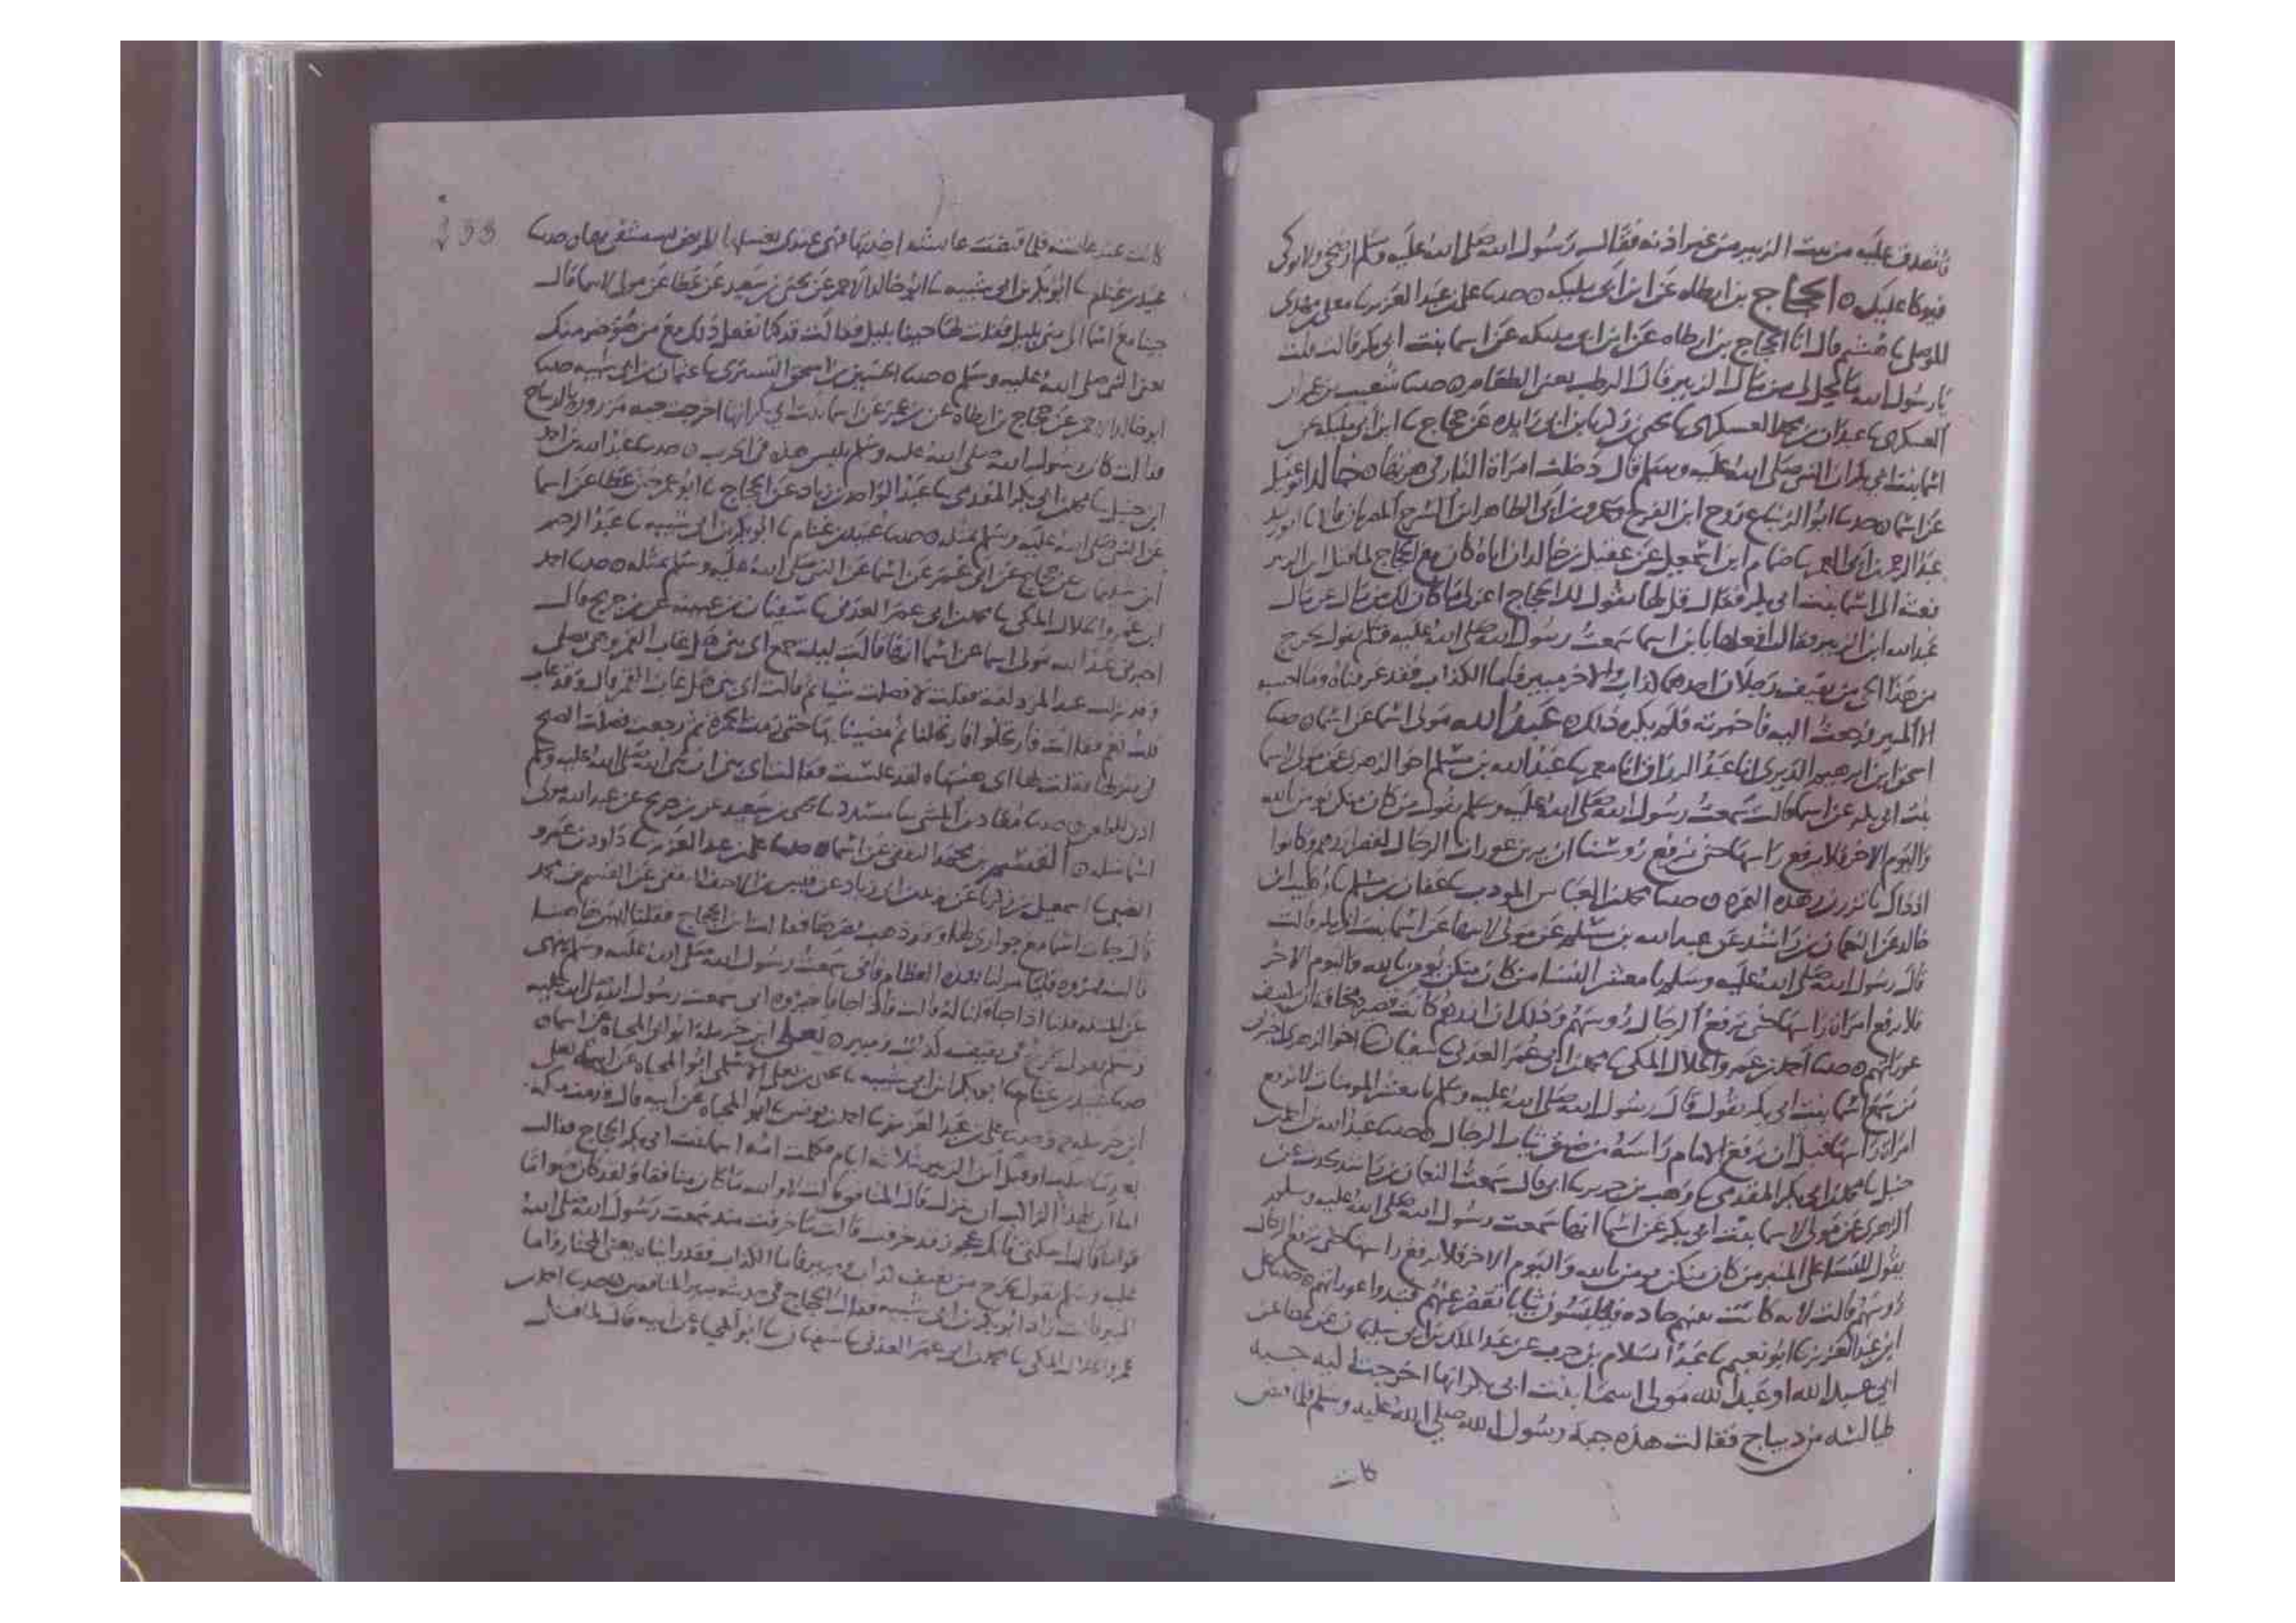 فأتصدق عليه من بيت الزبير من غير اذنه فقال رسول الله صلى الله عليه وسلم ارضخي ولا توكي
فيوكا عليك ه الحجاج بن ارطاه عن ابن ابي مليكه ه حدثنا علي بن عبد العزيز نا معلى بن مهدي
الموصلي نا هشيم قال انا الحجاج بن ارطاه عن ابن ابي مليكه عن اسما بنت ابي بكر قالت قلت
يا رسول الله ما يحل لي من مال الزبير قال الرطب يعني الطعام ه حدثنا شعيب بن عمران
العسكري نا عبدان بن محمد العسكري نا يحيى بن زكريا بن ابي زايده عن حجاج نا ابن ابي مليكه عن
اسما بنت ابي بكر ان النبي صلى الله عليه وسلم قال دخلت امراة النار في هره خالد ابو عقيل
عن اسما ه حدثنا ابو الزنباع روح ابن الفرج وعمرو بن ابي الطاهر ابن السرح المصريان قالا نا ابو زيد
عبد الرحمن بن ابي الغمر نا ضمام ابن اسمعيل عن عقيل بن خالد ان اباه كان مع الحجاج لما قتل ابن الزبير
بعثه الى اسما بنت ابي بكر فقال قل لها يقول لك الحجاج اعزلي ما كان لك من مال عن مال
عبد الله ابن الزبير فقالت يا ابن اسما سمعت رسول الله صلى الله عليه وسلم يقول يخرج
من هذا الحي من ثقيف رجلان احدهما كذاب والاخر مبير فاما الكذاب فقد عرفناه وما احسبه
الا المبير فرجعت اليه فاخبرته فلم يكره ذلك ه عبد الله مولى اسما عن اسما ه حدثنا
اسحق ابن ابرهيم الدبري انا عبد الرزاق انا معمر نا عبد الله بن مسلم اخو الزهري عن مولى اسما
بنت ابي بكر عن اسما قالت سمعت رسول الله صلى الله عليه وسلم يقول من كان منكن يومن بالله
واليوم الاخر فلا ترفع راسها حتى نرفع روسنا ان يرين عورات الرجال لصغر ازرهم وكانوا
اذ ذاك ياتزرون هذه النمره ه حدثنا محمد بن العباس المودب نا عفان بن مسلم نا وهيب ابن
خالد عن النعمان بن راشد عن عبد الله بن مسلم عن مولى لاسما عن اسما بنت ابي بكر قالت
قال رسول الله صلى الله عليه وسلم يا معشر النسا من كان منكن يومن بالله واليوم الاخر
فلا ترفع امراة راسها حتى يرفع الرجال روسهم وذلك ان ازرهم كانت قصيره مخافة ان تنكشف
عوراتهم ه حدثنا احمد بن عمرو الخلال المكي نا محمد بن ابي عمر العدني نا سفيان اخو الزهري اخبرني
من سمع اسما بنت ابي بكر تقول قال رسول الله صلى الله عليه وسلم يا معشر المومنات لا ترفع
امراة راسها قبل ان يرفع الامام راسه من ضيق ثياب الرجال ه حدثنا عبد الله بن احمد بن
حنبل نا محمد بن ابي بكر المقدمي نا وهب بن جرير نا ابي قال سمعت النعمان بن راشد يحدث عن
الزهري عن مولى لاسما بنت ابي بكر عن اسما انها سمعت رسول الله صلى الله عليه وسلم
يقول للنسا على المنبر من كان منكن يومن بالله واليوم الاخر فلا ترفع راسها حتى يرفع الرجال
روسهم قالت لانه كانت بهم حاده فيلبسون ثيابا تقصر عنهم فتبدوا عوراتهم ه حدثنا علي
ابن عبد العزيز نا ابو نعيم نا عبد السلام بن حرب عن عبد الملك بن ابي سليمان عن عطا عن
ابي عبد الله او عبد الله مولى اسما بنت ابي بكر انها اخرجت اليه جبه
طيالسه من ديباج فقالت هذه جبة رسول الله صلى الله عليه وسلم فلما قبض
كانت
كانت عند عايشه فلما قبضت عايشه اخذتها فهي عندي نغسلها للمريض يستشفي بها ه حدثنا
عبيد بن غنام نا ابو بكر بن ابي شيبه نا ابو خالد الاحمر عن يحيى بن سعيد عن عطا عن مولى لاسما قال
جينا مع اسما الى منى بليل فقلت لها جينا بليل فقالت قد كنا نفعل ذلك مع من هو خير منك
يعني النبي صلى الله عليه وسلم ه حدثنا الحسين بن اسحق التستري نا عثمان بن ابي شيبه حدثنا
ابو خالد الاحمر عن حجاج بن ارطاه عن ابي عمر عن اسما بنت ابي بكر انها اخرجت جبه مزروره بالديباج
فقالت كان رسول الله صلى الله عليه وسلم يلبس هذه في الحرب ه حدثنا عبد الله بن احمد
ابن حنبل نا محمد بن ابي بكر المقدمي نا عبد الواحد بن زياد عن الحجاج نا ابو عمر ختن عطا عن اسما
عن النبي صلى الله عليه وسلم بمثله ه حدثنا عبيد بن غنام نا ابو بكر بن ابي شيبه نا عبد الرحيم
ابن سليمان عن حجاج عن ابي عمر عن اسما عن النبي صلى الله عليه وسلم بمثله ه حدثنا احمد
ابن عمرو الخلال المكي نا محمد بن ابي عمر العدني نا سفيان بن عيينه عن ابن جريج قال
اخبرني عبد الله مولى اسما عن اسما انها قالت ليلة جمع اي بني هل غاب القمر وهي تصلي
وقد نزلت عند المزدلفه فقلت لا فصلت شيا ثم قالت اي بني هل غاب القمر قال وقد غاب
قلت نعم فقالت فارتحلوا فارتحلنا ثم مضينا بها حتى رمت الجمره ثم رجعت فصلت الصبح
في منزلها فقلت لها اي هنتاه لقد غلسنا فقالت اي بني ان نبي الله صلى الله عليه وسلم
اذن للظعن ه حدثنا معاذ بن المثنى نا مسدد نا يحيى بن سعيد عن ابن جريج عن عبد الله مولى
اسما مثله ه القسم بن محمد الثقفي عن اسما ه حدثنا علي بن عبد العزيز نا داود بن عمرو
الضبي نا اسمعيل بن زكريا عن يزيد بن ابي زياد عن قيس بن الاحنف الثقفي عن القسم بن محمد
قال جات اسما مع جواري لها وقد ذهب بصرها فقالت اين الحجاج فقلنا ليس هاهنا
قالت فمروه فليامر لنا بهذه العظام فاني سمعت رسول الله صلى الله عليه وسلم ينهى
عن المثله قلنا اذا جا قلنا له قالت فاذا جا فاخبروه اني سمعت رسول الله صلى الله عليه
وسلم يقول يخرج في ثقيف كذاب ومبير ه يعلى ابن حرمله ابو ابي المحياه عن اسما ه
حدثنا عبيد بن غنام نا ابو بكر ابن ابي شيبه نا يحيى بن يعلى الاسلمي ابو المحياه عن ابيه يعلى
ابن حرمله ح وحدثنا علي بن عبد العزيز نا احمد بن يونس نا ابو المحياه عن ابيه قال قدمت مكه
بعد ما صلب او قتل ابن الزبير بثلاثة ايام فكلمت امه اسما بنت ابي بكر الحجاج فقالت
اما ان لهذا الراكب ان ينزل قال المنافق قالت لا والله ما كان منافقا ولقد كان صواما
قواما قال اسكتي فانك عجوز قد خرفت قالت ما خرفت منذ سمعت رسول الله صلى الله
عليه وسلم يقول يخرج من ثقيف كذاب ومبير فاما الكذاب فقد رايناه يعني المختار واما
المبير فانت زاد ابو بكر بن ابي شيبه فقال الحجاج في حديثه مبير المنافقين ه حدثنا احمد بن
عمرو الخلال المكي نا محمد بن ابي عمر العدني نا سفيان نا ابو المحياه عن ابيه قال لما قتل